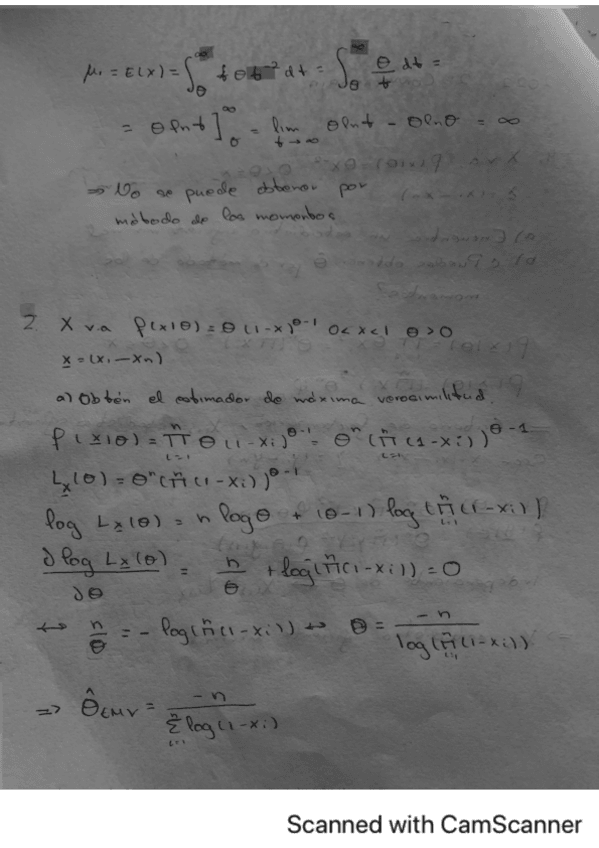 μ₁ = E(X) = ∫_θ^∞ t θ t⁻² dt = ∫_θ^∞ θ/t dt =
= θ ln t ]_θ^∞ = lim_{t→∞} θ ln t - θ ln θ = ∞
⇒ No se puede obtener por
método de los momentos
2. X v.a f(x|θ) = θ (1-x)^{θ-1} 0<x<1 θ>0
x = (x₁ — xn)
a) Obtén el estimador de máxima verosimilitud.
f(x|θ) = ∏_{i=1}^n θ (1-xi)^{θ-1} = θ^n (∏_{i=1}^n (1-xi))^{θ-1}
L_x(θ) = θ^n (∏_{i=1}^n (1-xi))^{θ-1}
log L_x(θ) = n log θ + (θ-1) log (∏_{i=1}^n (1-xi))
∂ log L_x(θ) / ∂θ = n/θ + log(∏_{i=1}^n (1-xi)) = 0
↔ n/θ = - log(∏_{i=1}^n (1-xi)) ↔ θ = -n / log(∏_{i=1}^n (1-xi))
⇒ θ̂_{EMV} = -n / ∑_{i=1}^n log(1-xi)
Scanned with CamScanner